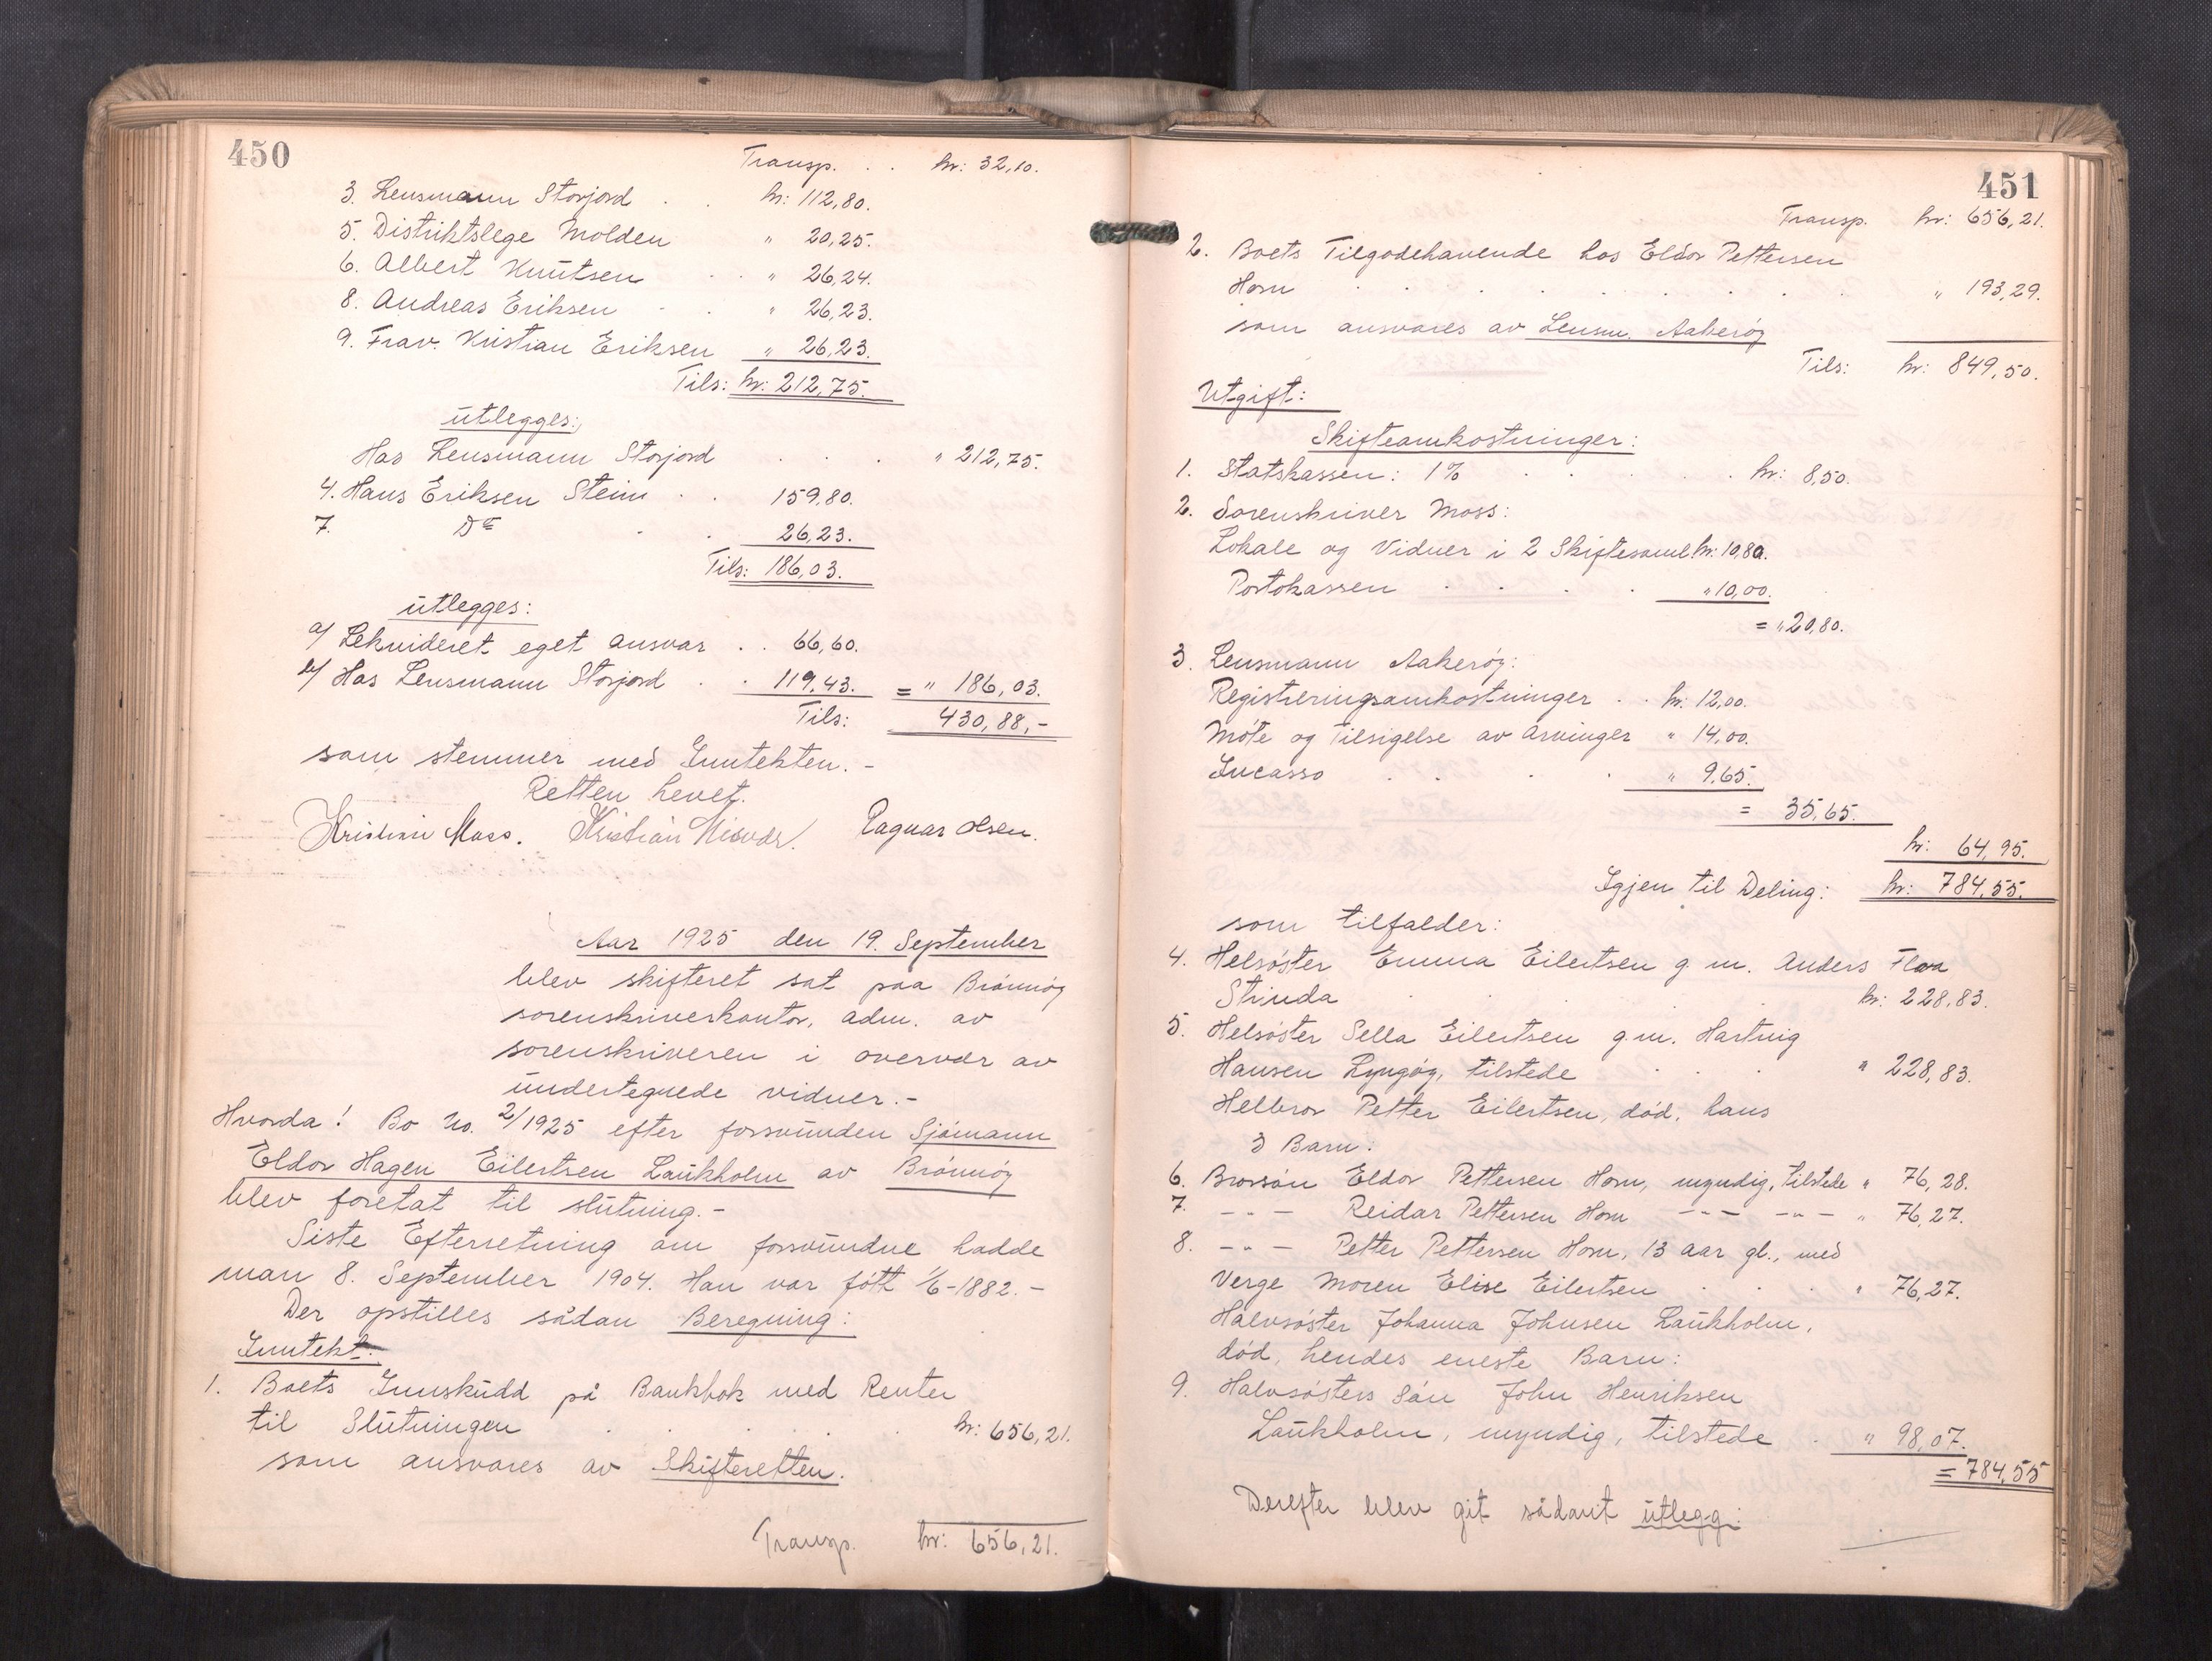 450
Transp. . . kr: 32,10.
3. Lensmann Storjord . . kr: 112,80.
5. Distriktslege Molden " 20,25.
6. Albert Knutsen . . " 26,24.
8. Andreas Eriksen . . " 26,23.
9. Frav. Kristian Eriksen " 26,23.
Tils: kr: 212,75.
utlegges:
Hos Lensmann Storjord . . . " 212,75.
4. Hans Eriksen Stein . . 159,80.
7. Do . . 26,23.
Tils: 186,03.
utlegges:
a/ Lekvideret eget ansvar . . 66,60.
b/ Hos Lensmann Storjord . . 119,43. = " 186,03.
Tils: 430,88,-
som stemmer med Inntekten. -
Retten hevet.
Kristian Moss. Kristian Ragnar Olsen.
Aar 1925 den 19. September
blev skifteret sat paa Brönnöy
sorenskriverkontor, adm. av
sorenskriveren i overvær av
undertegnede vidner.-
Hvorda! Bo No. 2/1925 efter forsvunden Sjömann
Eldor Hagen Eilertsen Laukholm av Brönnöy
blev foretat til slutning.-
Siste Efterretning om forsvundne hadde
man 8. September 1904. Han var födt 1/6-1882.-
Der opstilles sådan Beregning:
Inntekt:
1. Boets Innskudd på Bankbok med Renter
til Slutningen . . . . . kr: 656,21.
som ansvares av Skifteretten.
Transp. kr: 656,21.
451
Transp. kr: 656,21.
2. Boets Tilgodehavende hos Eldor Pettersen
Horn . . . . . . . . " 193,29.
som ansvares av Lensm. Aakeröy
Tils: kr: 849,50.
Utgift:
Skifteomkostninger:
1. Statskassen: 1% . . . . kr: 8,50.
2. Sorenskriver Moss:
Lokale og Vidner i 2 Skiftesaml. kr: 10,80.
Portokassen . . . . " 10,00.
= " 20,80.
3. Lensmann Aakeröy:
Registreringsomkostninger . . kr: 12,00.
Möte og Tilsigelse av Arvinger " 14,00.
Incasso . . . " 9,65.
= 35,65.
kr: 64,95.
Igjen til Deling: kr: 784,55.
som tilfalder:
4. Helsöster Emma Eilertsen g. m. Anders Flaa
Strinda . . . . kr: 228,83.
5. Helsöster Sella Eilertsen g.m. Hartvig
Hansen Lyngöy, tilstede . . . " 228,83.
Helbror Petter Eilertsen, död, hans
3 Barn:
6. Brorsön Eldor Pettersen Horn, myndig, tilstede " 76,28.
7. - " - Reidar Pettersen Horn - " - - " - " 76,27.
8. - " - Petter Pettersen Horn, 13 aar gl., med
Verge Moren Elise Eilertsen . . . " 76,27.
Halvsöster Johanna Johnsen Laukholm,
död, hendes eneste Barn:
9. Halvsösters Sön John Henriksen
Laukholm, myndig, tilstede . " 98,07.
= 784,55
Derefter blev git sådant utlegg: